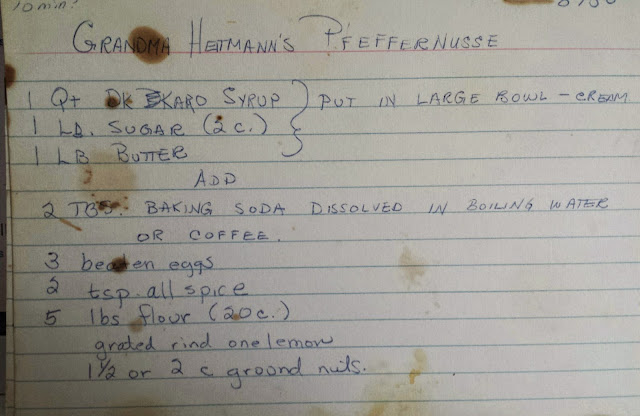 10 min.
GRANDMA HEITMANN'S PFEFFERNUSSE
1 Qt DK KARO SYRUP } PUT IN LARGE BOWL - CREAM
1 LB. SUGAR (2 c.)
1 LB BUTTER
ADD
2 TBS. BAKING SODA DISSOLVED IN BOILING WATER
OR COFFEE.
3 beaten eggs
2 tsp. all spice
5 lbs flour (20 c.)
grated rind one lemon
1 1/2 or 2 c ground nuts.